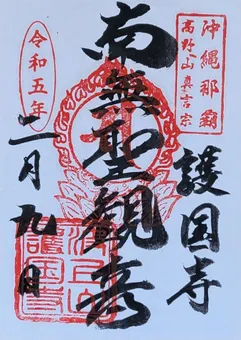 沖縄那覇
高野山真言宗
護国寺
南無聖観音
令和五年
二月九日
護国寺